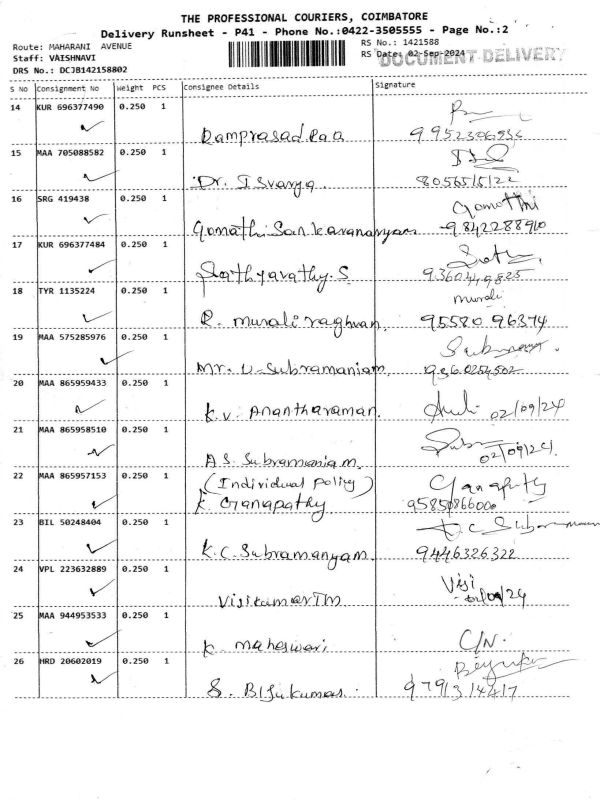 THE PROFESSIONAL COURIERS, COIMBATORE
Delivery Runsheet - P41 - Phone No.:0422-3505555 - Page No.:2
Route: MAHARANI AVENUE
RS No.: 1421588
Staff: VAISHNAVI
RS Date: 02-Sep-2024
DOCUMENT DELIVERY
DRS No.: DCJB142158802
S No Consignment No Weight PCS Consignee Details Signature
14 KUR 696377490 0.250 1
Ramprasad Rao
15 MAA 705088582 0.250 1
Dr. Isvarya
16 SRG 419438 0.250 1 Gomathi
Gomathi Sankaranarayanan 9842288910
17 KUR 696377484 0.250 1
Sathyavathy. S
18 TYR 1135224 0.250 1 murali
R. murali raghvan 95580 96374
19 MAA 575285976 0.250 1
Mr. U. Subramaniam
20 MAA 865959433 0.250 1
K.V. Anantharaman. 02/09/24
21 MAA 865958510 0.250 1
A S. Subramaniam. 02/09/24
22 MAA 865957153 0.250 1 (Individual Policy) Ganapathy
K. Ganapathy
23 BIL 50248404 0.250 1 K.C. Subramaniam
K.C. Subramanyam. 9446326322
24 VPL 223632889 0.250 1 Visi
Visikumar TM 02/09/24
25 MAA 944953533 0.250 1
K. maheswari C/N.
26 HRD 20602019 0.250 1
S. Bijukumar. 9791314417